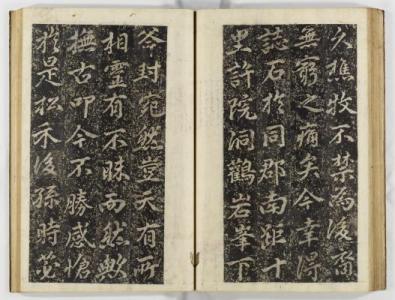 久樵牧不禁為後裔
無窮之痛矣今幸得
誌石於同郡南距十
里許院洞鸛岩峯下
斧封宛然豈天有所
相靈有不昧而然歟
撫古叩今不勝感愴
於是松禾後孫時